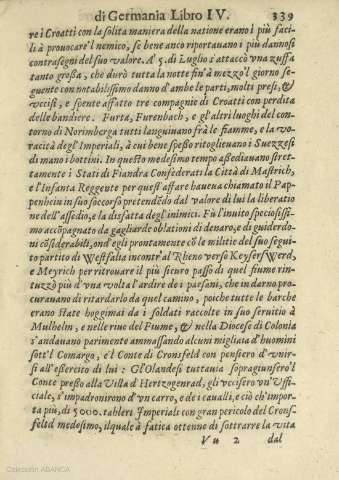 di Germania Libro IV. 339
re i Croatti con la solita maniera della natione erano i più faci-
li à prouocare l'nemico, se bene anco riportauano i più dannosi
contrasegni del suo valore. A' 5. di Luglio s'attaccò vna zuffa
tanto großa, che durò tutta la notte fin'à mezzo'l giorno se-
guente con notabilissimo danno d'ambe le parti, molti presi, &
vccisi, e spente affatto tre compagnie di Croatti con perdita
delle bandiere. Furta, Furenbach, e gl'altri luoghi del con-
torno di Norimberga tutti languiuano frà le fiamme, e la vo-
racità degl'Imperiali, à cui bene speßo ritoglieuano i Suezzesi
di mano i bottini. In questo medesimo tempo aßediauano stret-
tamente i Stati di Fiandra Confederati la Città di Mastrich,
e l'Infanta Reggente per quest'affare haueua chiamato il Pap-
penhein in suo soccorso pretendēdo dal valore di lui la liberatio
ne dell'assedio, e la disfatta degl'inimici. Fù l'inuito speciosissi-
mo accōpagnato da gagliarde oblationi di denaro, e di guiderdo-
ni cōsiderabili, ond'egli prontamente cō le militie del suo segui-
to partito di Westfalia incontr'al Rheno verso KeyserVVerd,
e Meyrich per ritrouare il più sicuro passo di quel fiume rin-
tuzzò più d'vna volta l'ardire de i paesani, che in darno pro-
curauano di ritardarlo da quel camino, poiche tutte le barche
erano state hoggimai da i soldati raccolte in suo seruitio à
Mulhelm, e nelle riue del Fiume, & nella Diocese di Colonia
s'andauano parimente ammassando alcuni migliaia d'huomini
sott'l Comargo, e'l Conte di Cronsfeld con pensiero d'vnir-
si all'eßercito di lui: Gl'Olandesi tuttauia sopragiunsero'l
Conte preßo alla Villa d'Hertzogenrad, gli vccisero vn'Uffi-
ciale, s'impadronirono d'vn carro, e de i caualli, e ciò ch'impor-
ta più, di 5000. tahleri Imperiali con gran pericolo del Crons-
feld medesimo, ilquale à fatica ottenne di sottrarre la vita
Vu 2 dal
Colección ABANCA